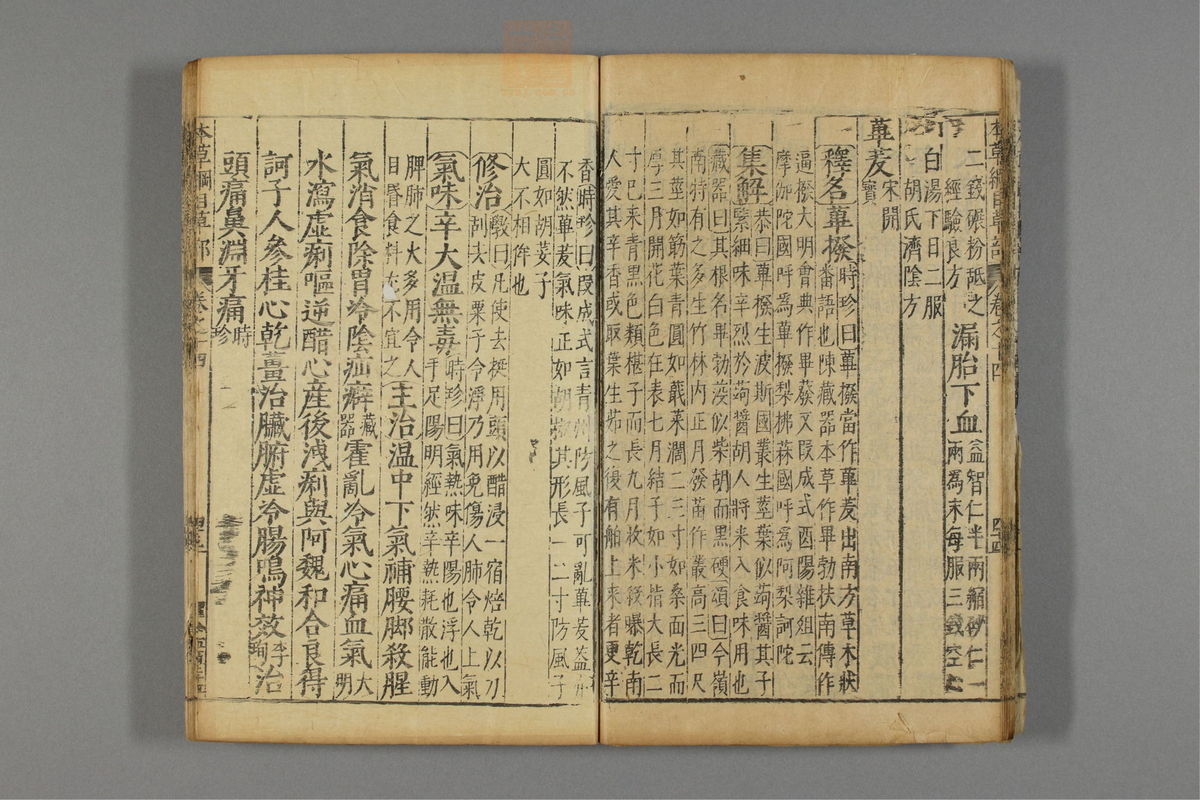 二錢碾粉砥之
經驗良方
漏胎下血
益智仁半兩縮砂仁一
兩為末每服三錢空心
白湯下日二服
胡氏濟陰方
蓽茇
宋開
寶
釋名蓽撥
時珍曰蓽撥當作蓽茇出南方草木狀
番語也陳藏器本草作畢勃扶南傳作
逼撥大明會典作畢發又叚成式酉陽雜組云
摩伽陀國呼為蓽撥梨拂菻國呼為阿梨訶陀
集解
恭曰蓽撥生波斯國叢生莖葉似蒟醬其子
緊細味辛烈於蒟醬胡人將來入食味用也
藏器曰其根名畢勃蔆似柴胡而黑硬頌曰今嶺
南特有之多生竹林内正月發苗作叢高三四尺
其莖如筯葉青圓如蕺菜濶二三寸如桑面光而
厚三月開花白色在表七月結子如小指大長二
寸巳來青黑色類椹子而長九月收采殺曝乾南
人愛其辛香或取葉生茹之後有舶上來者更辛
香時珍曰叚成式言青州防風子可亂蓽茇蓋亦
不然蓽茇氣味正如胡椒其形長一二寸防風子
圓如胡荽子
大不相侔也
修治
斆曰凡使去挺用頭以醋浸一宿焙乾以刀
刮去皮粟子令淨乃用免傷人肺令人上氣
氣味辛大温無毒
時珍曰氣熱味辛陽也浮也入
手足陽明經然辛熱耗散能動
脾肺之火多用令人
目昏食料尤不宜之
主治温中下氣補腰脚殺腥
氣消食除胃冷陰疝癖
藏
器
霍亂冷氣心痛血氣
大
明
水瀉虛痢嘔逆醋心產後洩痢與阿魏和合良得
訶子人參桂心乾薑治臟腑虛冷腸鳴神效
李
珣
治
頭痛鼻淵牙痛
時
珍
本草綱目草部
卷之十四